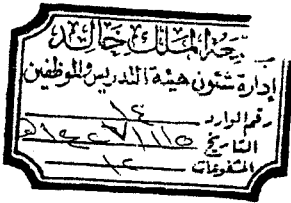 جامعة الملك خالد
إدارة شئون هيئة التدريس والموظفين
رقم الوارد ١٤
التاريخ ١٤٢٧/١١/٥هـ
المشفوعات ١٢